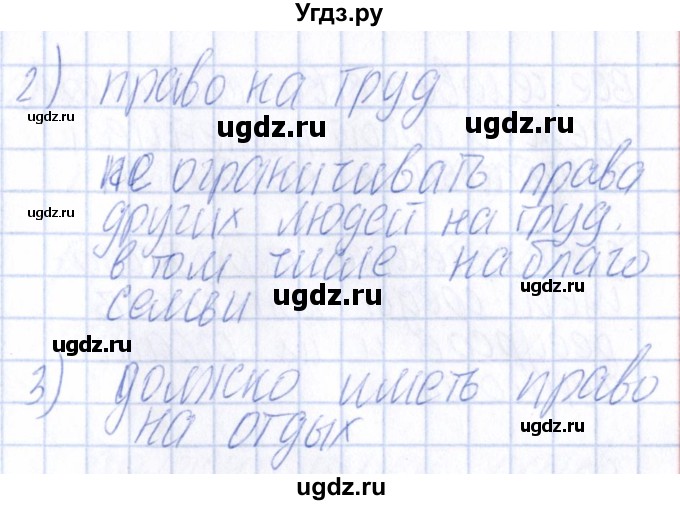 Угдз.ру
2) право на труд
ugdz.ru ugdz.ru ugdz.ru
не ограничивать права
ugdz.ru
других людей на труд.
в том числе на благо
ugdz.ru ugdz.ru
семьи
ugdz.ru
3) должно иметь право
на отдых
ugdz.ru
ugdz.ru